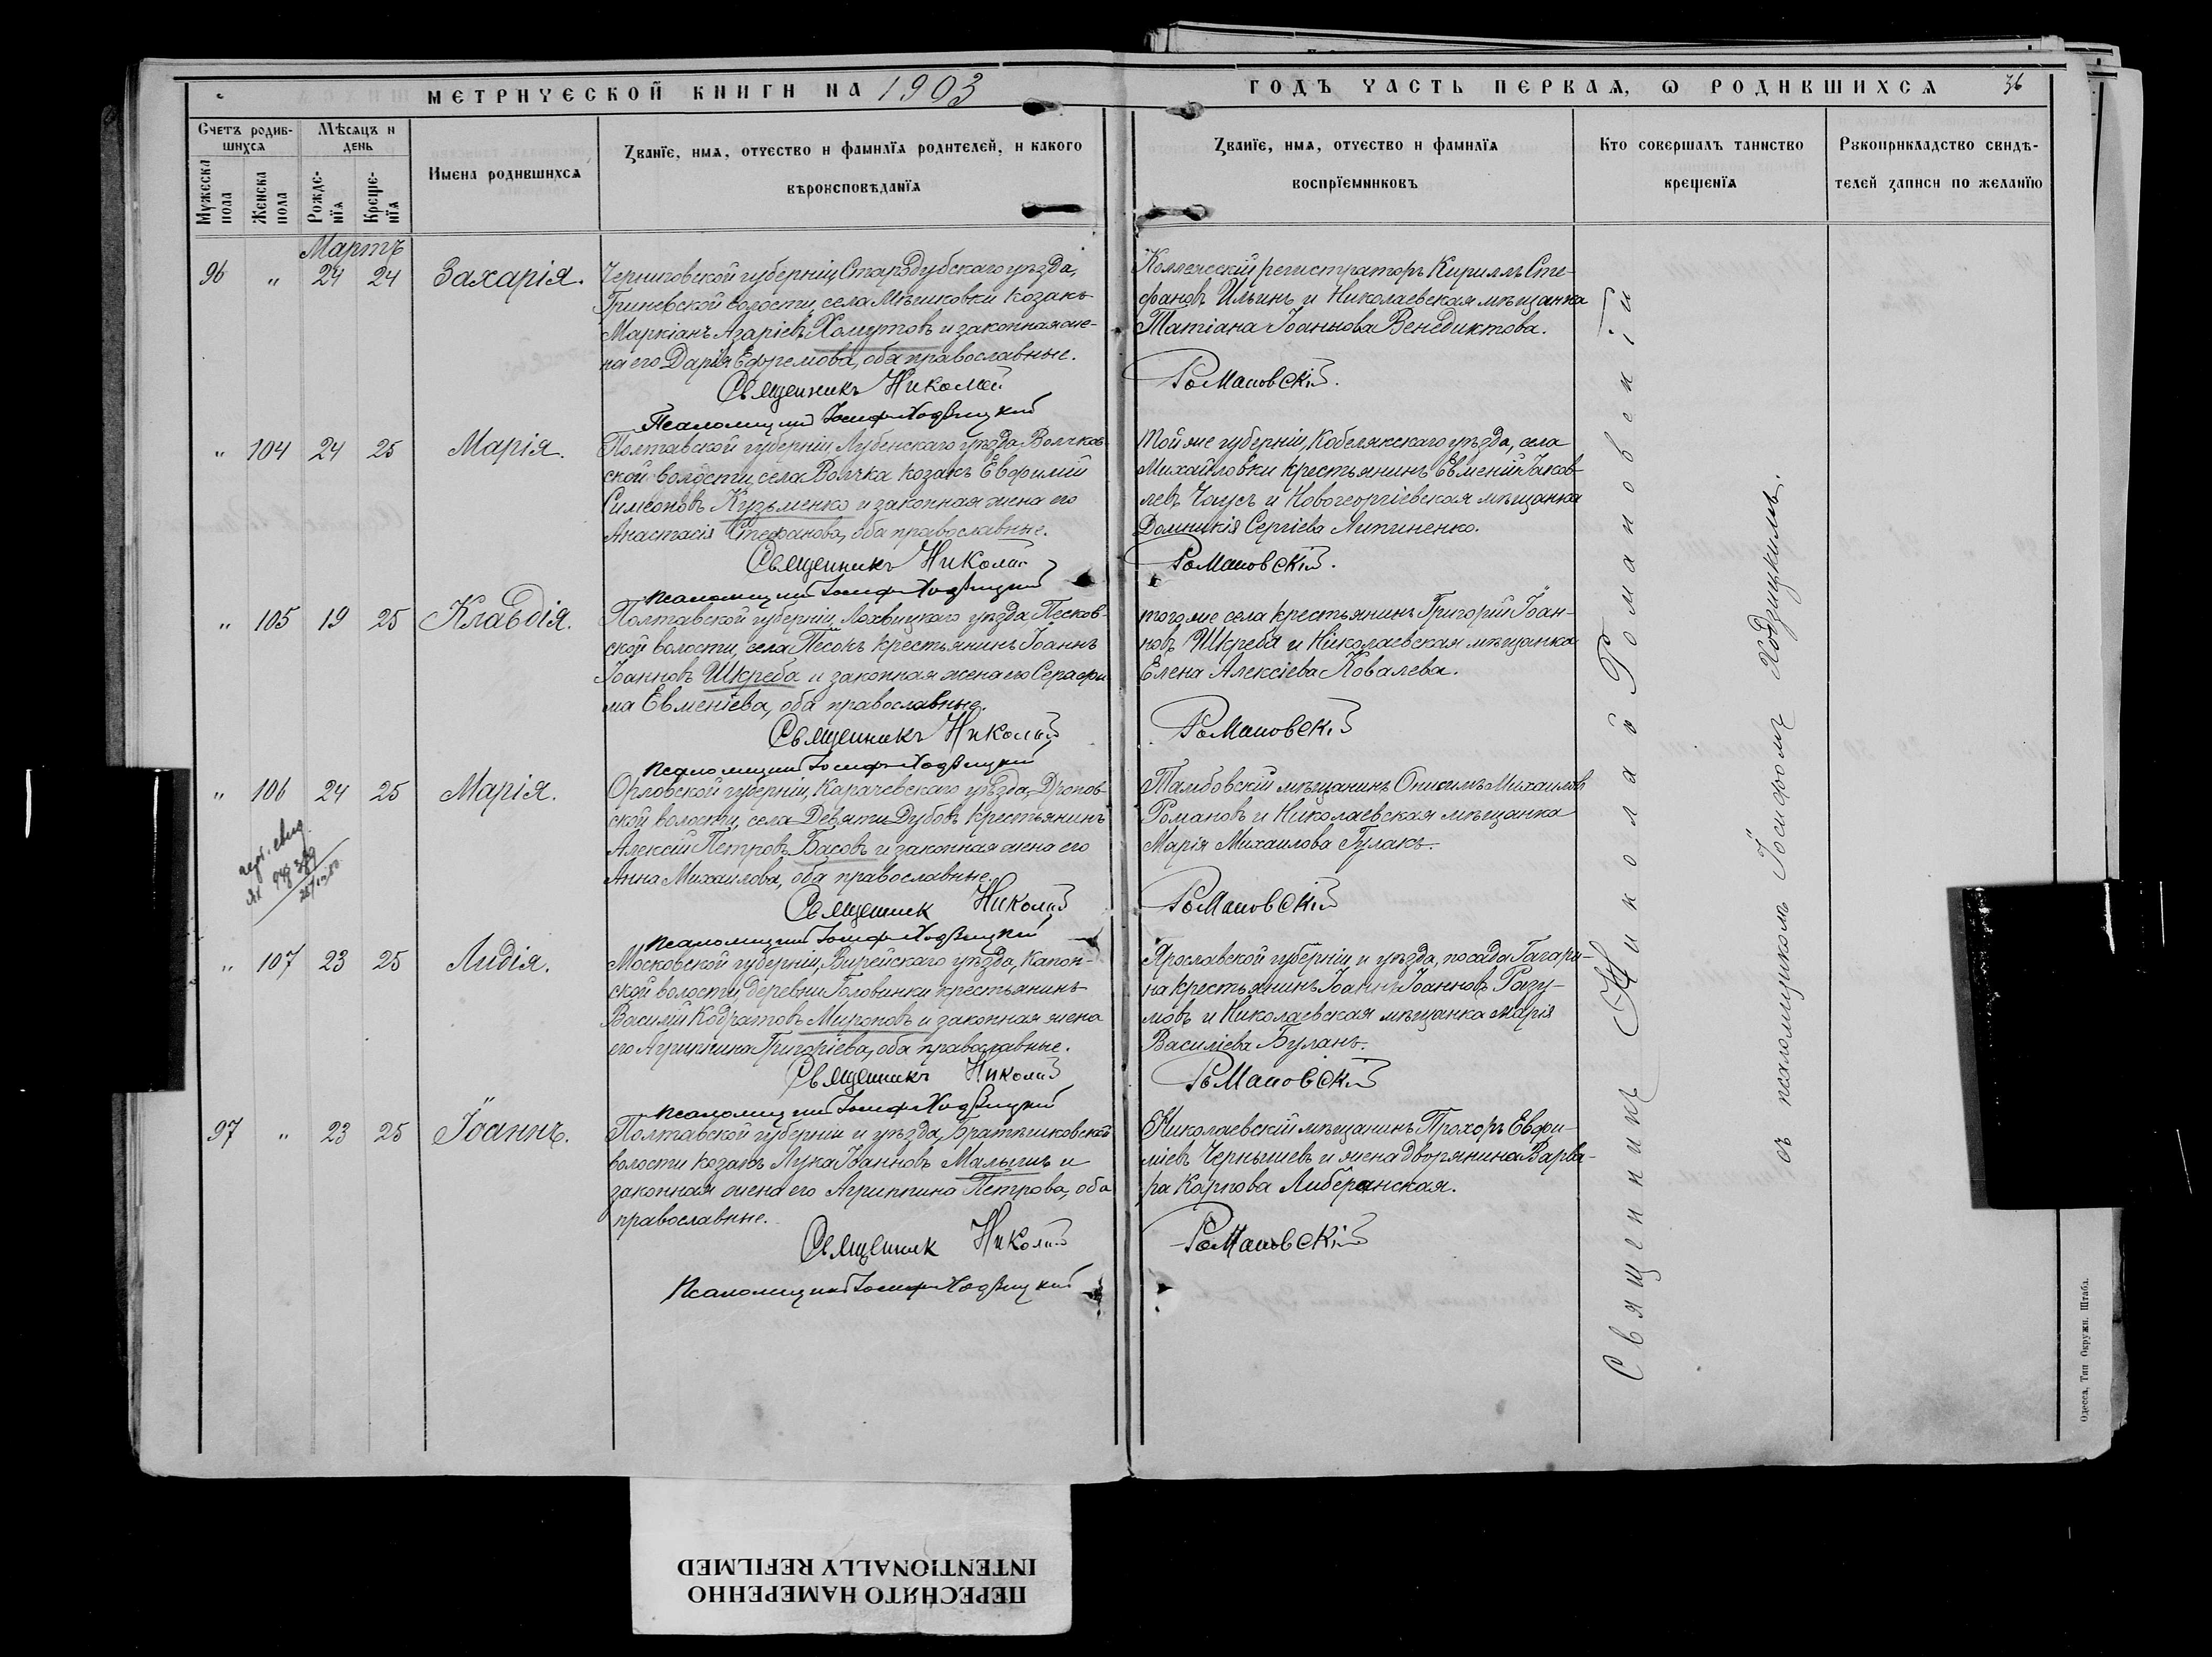 МЕТРИЧЕСКОЙ КНИГИ НА 1903
ГОДЪ ЧАСТЬ ПЕРВАЯ, Ѡ РОДИВШИХСЯ 36
Счетъ родив-
шихся
Мѣсяцъ и
день
Мужеска
пола
Женска
пола
Рожде-
нїя
Креще-
нїя
Имена родившихся
Званїе, имя, отчество и фамилїя родителей, и какого
вѣроисповѣданїя
Званїе, имя, отчество и фамилїя
воспрїемниковъ
Кто совершалъ таинство
крещенїя
Рукоприкладство свидѣ-
телей записи по желанїю
Мартъ
96 " 24 24 Захарія.
Черниговской губерніи, Стародубскаго уѣзда,
Гриневской волости, села Мѣшковки козакъ
Маркіанъ Азаріевъ Хомутовъ и законная же-
на его Дарія Ефремова, оба православные.
Священникъ Николай
Псаломщикъ Іосифъ Ходзицкій
Коллежскій регистраторъ Кириллъ Сте-
фановъ Ильинъ и Николаевская мѣщанка
Татіана Іоаннова Венедиктова.
Романовскій.
" 104 24 25 Марія.
Полтавской губерніи, Лубенскаго уѣзда Волчков-
ской волости, села Волчка козакъ Евфимій
Симеоновъ Кузьменко и законная жена его
Анастасія Стефанова, оба православные.
Священникъ Николай
Псаломщикъ Іосифъ Ходзицкій
Той же губерніи, Кобелякскаго уѣзда, села
Михайловки крестьянинъ Евменій Іаков-
левъ Чаусъ и Новогеоргіевская мѣщанка
Домникія Сергіева Литиненко.
Романовскій.
" 105 19 25 Клавдія.
Полтавской губерніи, Лохвицкаго уѣзда Песков-
ской волости, села Песокъ крестьянинъ Іоаннъ
Іоанновъ Шкреба и законная жена его Серафи
ма Евменіева, оба православные.
Священникъ Николай
Псаломщикъ Іосифъ Ходзицкій
того же села крестьянинъ Григорій Іоан-
новъ Шкреба и Николаевская мѣщанка
Елена Алексіева Ковалева.
Романовскій
" 106 24 25 Марія.
Орловской губерніи, Карачевскаго уѣзда, Дронов-
ской волости, села Девяти Дубовъ крестьянинъ
Алексій Петровъ Басовъ и законная жена его
Анна Михаилова, оба православные.
Священник Николай
Псаломщикъ Іосифъ Ходзицкій
Тамбовскій мѣщанинъ Онисимъ Михаиловъ
Романовъ и Николаевская мѣщанка
Марія Михаилова Гулакъ.
Романовскій
" 107 23 25 Лидія.
Московской губерніи, Вирейскаго уѣзда, Капон-
ской волости, деревни Головинки крестьянинъ
Василій Кодратовъ Мироновъ и законная жена
его Агриппина Григоріева, оба православные.
Священникъ Николай
Псаломщикъ Іосифъ Ходзицкій
Ярославской губерніи и уѣзда, посада Гагари-
на крестьянинъ Іоаннъ Іоанновъ Разу-
мовъ и Николаевская мѣщанка Марія
Василіева Буланъ.
Романовскій
97 " 23 25 Іоаннъ.
Полтавской губерніи и уѣзда, Братешковской
волости козакъ Лука Іоанновъ Малышъ и
законная жена его Агриппина Петрова, оба
православные.
Священник Николай
Псаломщикъ Іосифъ Ходзицкій
Николаевскій мѣщанинъ Прохоръ Евфи-
міевъ Чернышевъ и жена дворянина Варва-
ра Карпова Либеранская.
Романовскій
Священникъ Николай Романовскій
съ псаломщикомъ Іосифомъ Ходзицкимъ.
Одесса, Тип Окружн. Штаба.
ПЕРЕСНЯТО НАМЕРЕННО
INTENTIONALLY REFILMED